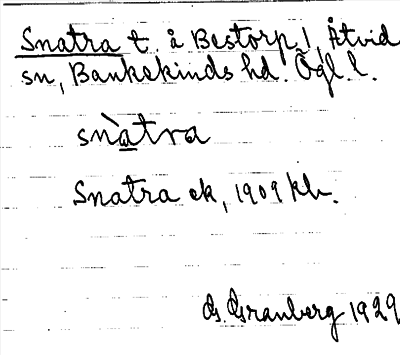 Snatra t. å Bestorp, Åtvid
sn, Bankekinds hd. Ögl. l.
snàtra
Snatra ek, 1909 kb.
G. Granberg 1929